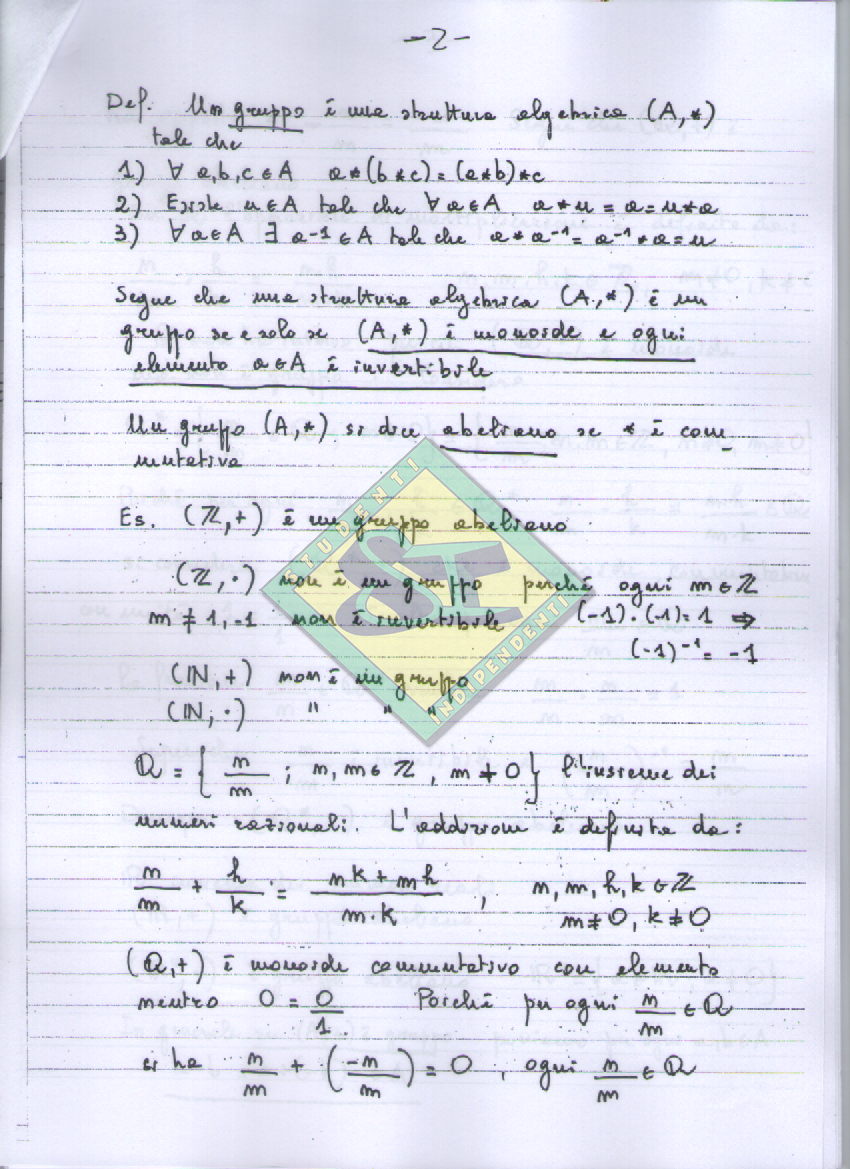 -2-
Def. Un gruppo è una struttura algebrica (A,*)
tale che
1) ∀ a,b,c ∈ A a*(b*c)=(a*b)*c
2) Esiste u∈A tale che ∀a∈A a*u=a=u*a
3) ∀a∈A ∃ a⁻¹∈A tale che a*a⁻¹=a⁻¹*a=u
Segue che una struttura algebrica (A,*) è un
gruppo se e solo se (A,*) è monoide e ogni
elemento a∈A è invertibile
Un gruppo (A,*) si dice abeliano se * è com_
mutativa
Es. (ℤ,+) è un gruppo abeliano
(ℤ,·) non è un gruppo perché ogni m∈ℤ
m≠1,-1 non è invertibile (-1)·(-1)=1 ⇒
(-1)⁻¹=-1
(ℕ,+) non è un gruppo
(ℕ,·) " " "
STUDENTI
SI
INDIPENDENTI
ℚ = { n/m ; n, m∈ℤ, m≠0} l'insieme dei
numeri razionali. L'addizione è definita da:
n/m + h/k = nk+mh/m·k , n, m, h, k∈ℤ
m≠0, k≠0
(ℚ,+) è monoide commutativo con elemento
neutro 0=0/1 Poiché per ogni n/m ∈ℚ
si ha n/m + (-n/m) = 0 , ogni n/m ∈ ℚ